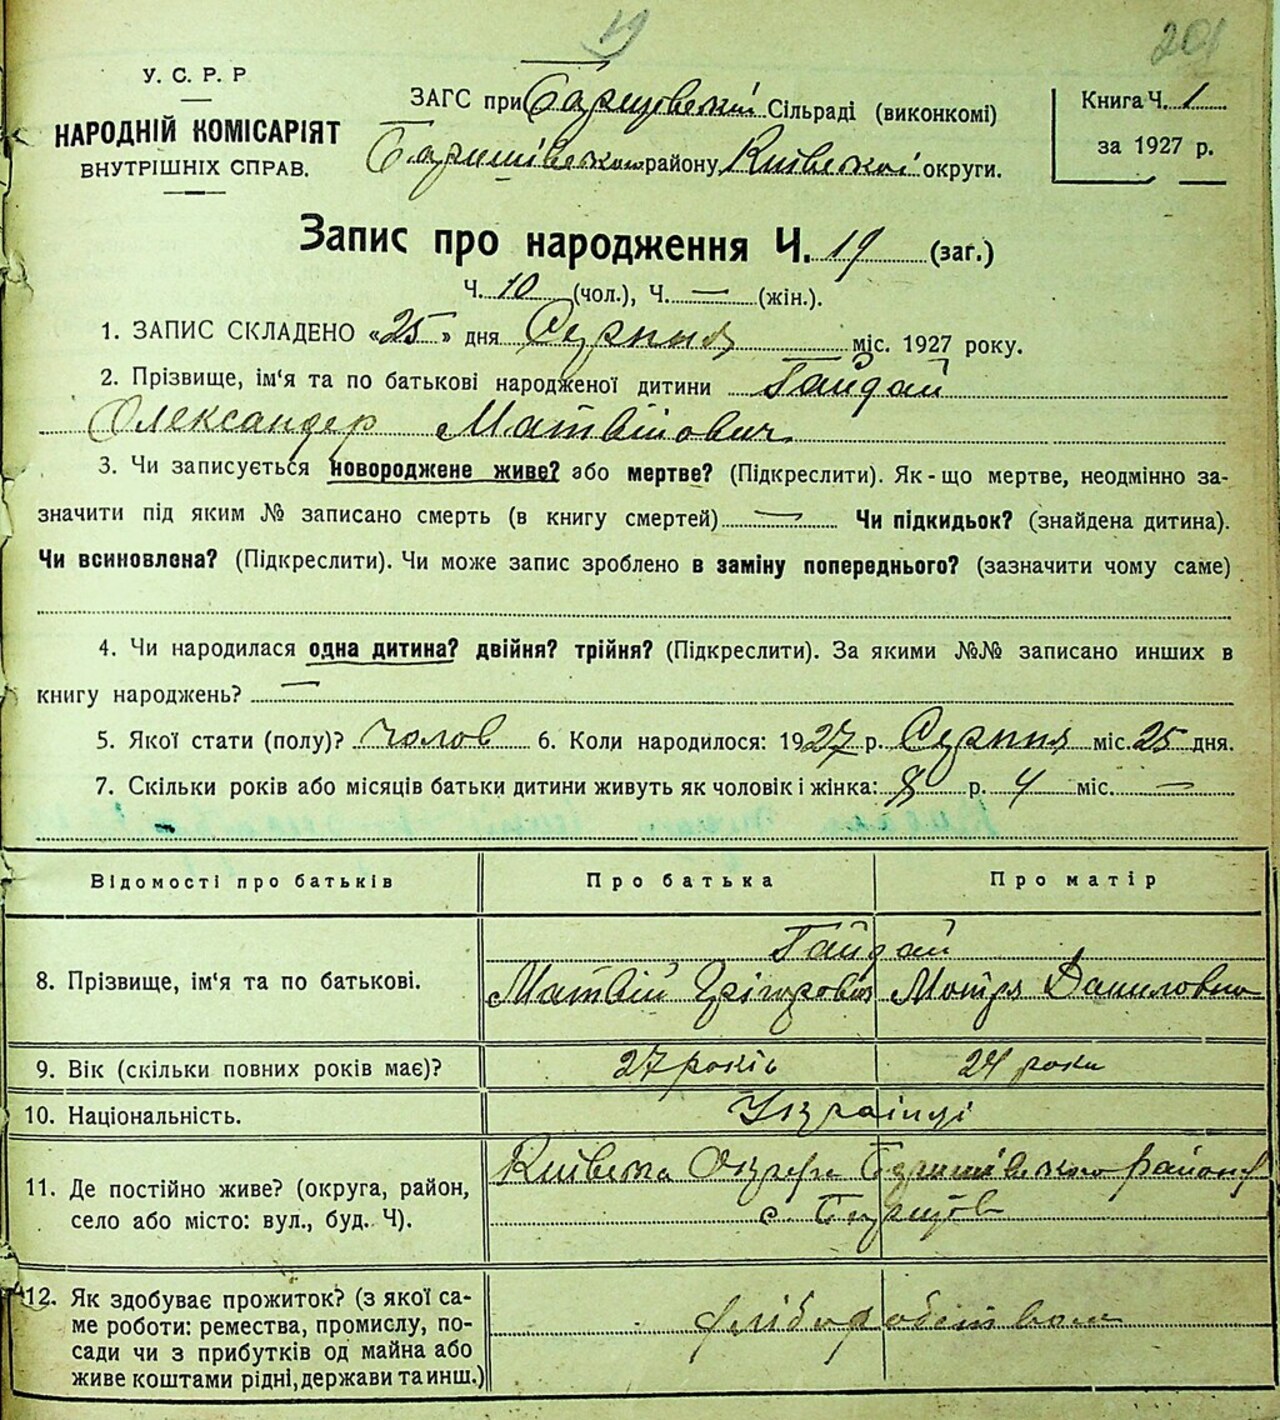 19
201
У. С. Р. Р
НАРОДНІЙ КОМІСАРІЯТ
ВНУТРІШНІХ СПРАВ.
ЗАГС при Сільраді (виконкомі)
Баришівського району Київської округи.
Книга Ч. 1
за 1927 р.
Запис про народження Ч. 19 (заг.)
Ч. 10 (чол.), Ч. — (жін.).
1. ЗАПИС СКЛАДЕНО «25» дня Серпня міс. 1927 року.
2. Прізвище, ім'я та по батькові народженої дитини Гайдай
Олександер Матвійович
3. Чи записується новороджене живе? або мертве? (Підкреслити). Як-що мертве, неодмінно за-
значити під яким № записано смерть (в книгу смертей) — Чи підкидьок? (знайдена дитина).
Чи всиновлена? (Підкреслити). Чи може запис зроблено в заміну попереднього? (зазначити чому саме)
4. Чи народилася одна дитина? двійня? трійня? (Підкреслити). За якими №№ записано инших в
книгу народжень? —
5. Якої стати (полу)? чолов 6. Коли народилося: 1927 р. Серпня міс. 25 дня.
7. Скільки років або місяців батьки дитини живуть як чоловік і жінка: 8 р. 4 міс. —
Відомості про батьків Про батька Про матір
Гайдай
8. Прізвище, ім'я та по батькові. Матвій Грігорович Мотря Даниловна
9. Вік (скільки повних років має)? 27 років 24 роки
10. Національність. Українці
11. Де постійно живе? (округа, район, Київська Округа Баришівського району
село або місто: вул., буд. Ч). с.
12. Як здобуває прожиток? (з якої са-
ме роботи: ремества, промислу, по- хліборобством
сади чи з прибутків од майна або
живе коштами рідні, держави та инш.)